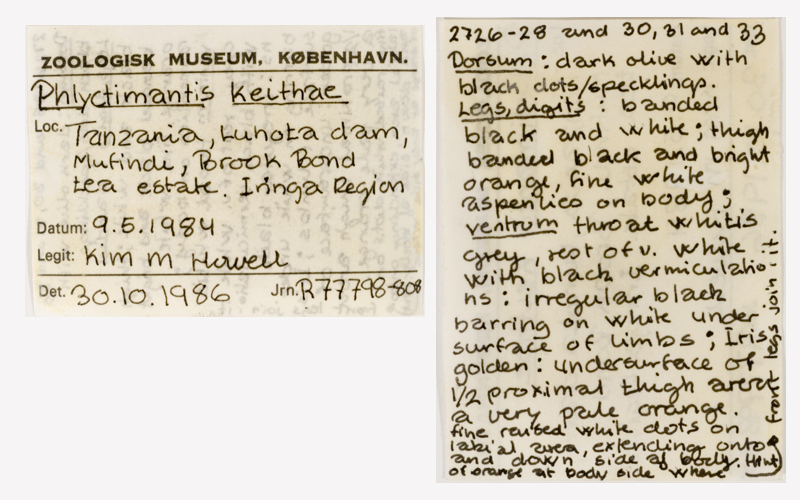 ZOOLOGISK MUSEUM, KØBENHAVN.
Phlyctimantis keithae
Loc. Tanzania, Luhota dam,
Mufindi, Brook Bond
tea estate. Iringa Region
Datum: 9.5.1984
Legit: Kim M Howell
Det. 30.10.1986 Jrn. R 77798-808
2726-28 and 30, 31 and 33
Dorsum : dark olive with
black dots/specklings.
Legs, digits : banded
black and white ; thigh
banded black and bright
orange, fine white
asperities on body ;
ventrum throat whitis
grey, rest of v. white
with black vermiculatio-
ns : irregular black
barring on white under
surface of limbs ; Iris
golden : undersurface of
1/2 proximal thigh
a very pale orange.
fine raised white dots on
labial area, extending onto
and down side of body. Hint
of orange at body side where
front legs join it.